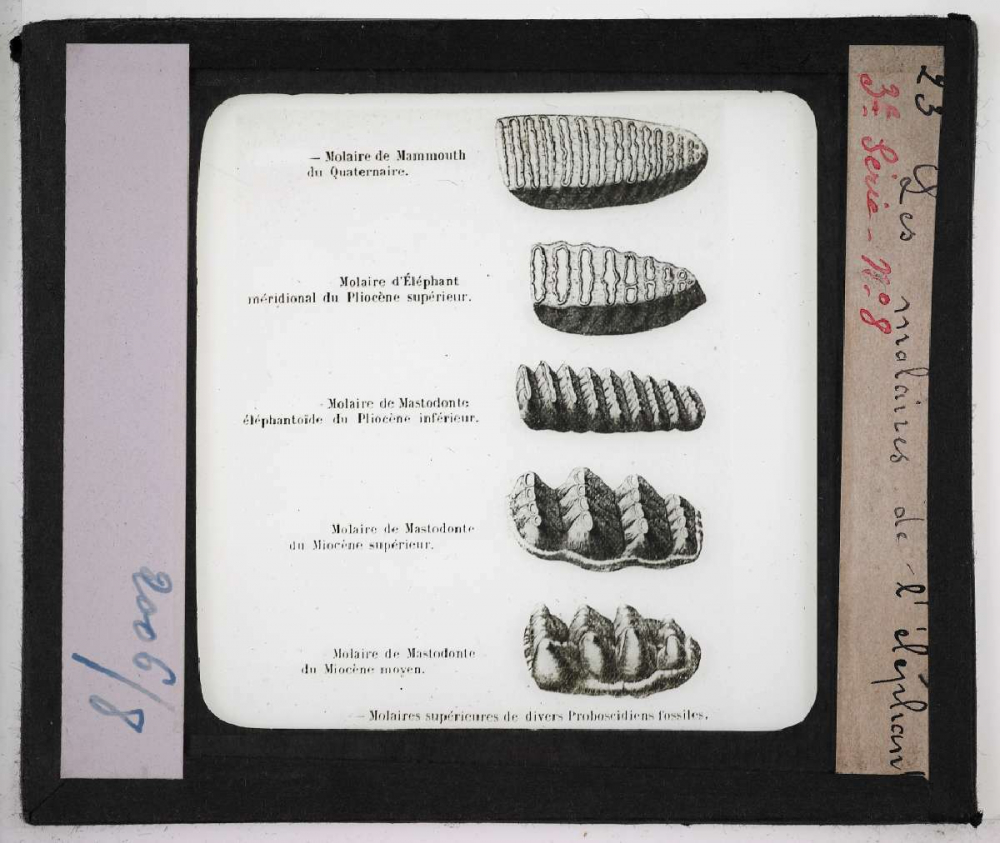 — Molaire de Mammouth
du Quaternaire.
Molaire d'Éléphant
méridional du Pliocène supérieur.
- Molaire de Mastodonte
éléphantoïde du Pliocène inférieur.
Molaire de Mastodonte
du Miocène supérieur.
Molaire de Mastodonte
du Miocène moyen.
— Molaires supérieures de divers Proboscidiens fossiles.
23 Les molaires de l'éléphant
3e Série - No 8
2006/8